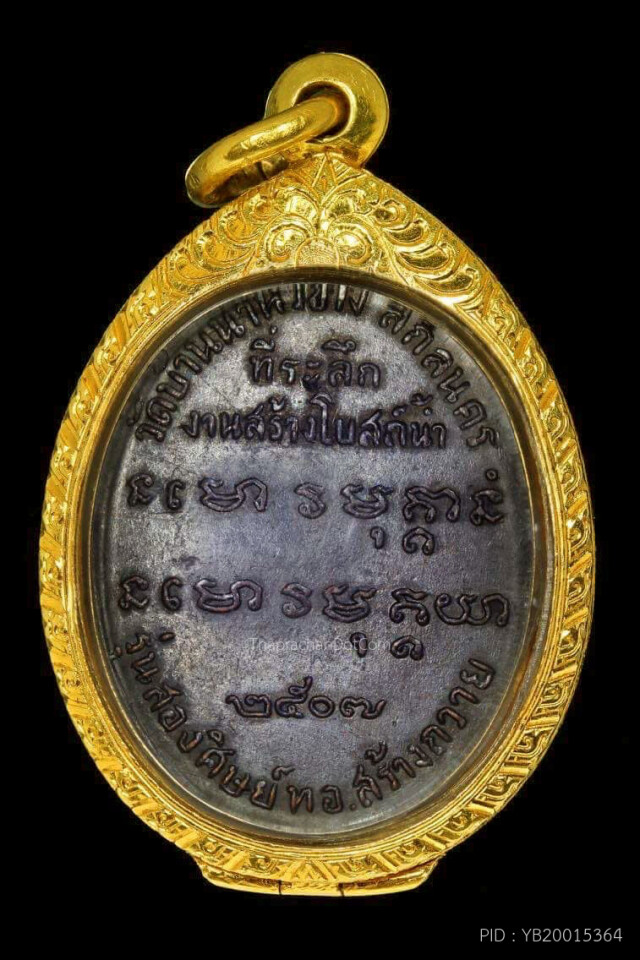 วัดบ้านนาหัวช้าง สกลนคร
ที่ระลึก
งานสร้างโบสถ์น้ำ
๒๕๐๗
รุ่นสองศิษย์ ทอ. สร้างถวาย
Thaprachan Dot Com
PID : YB20015364